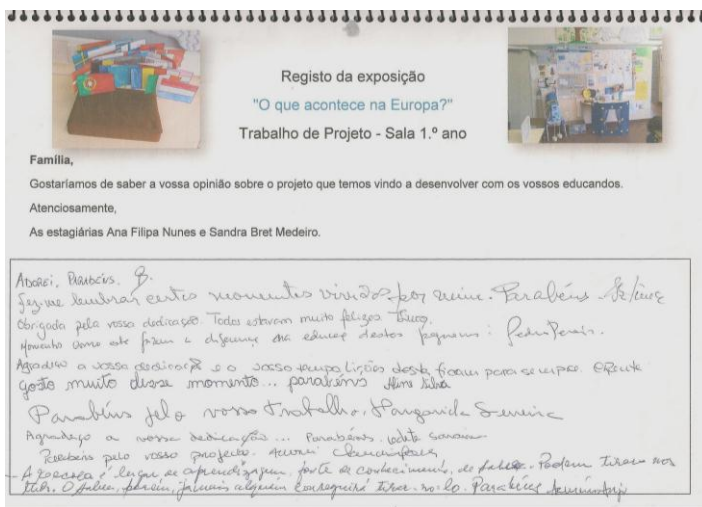 Registo da exposição
"O que acontece na Europa?"
Trabalho de Projeto - Sala 1.º ano
Família,
Gostaríamos de saber a vossa opinião sobre o projeto que temos vindo a desenvolver com os vossos educandos.
Atenciosamente,
As estagiárias Ana Filipa Nunes e Sandra Bret Medeiro.
Adorei, Parabéns.
Fez-me lembrar certos momentos vividos por mim. Parabéns
Obrigada pela vossa dedicação. Todos estavam muito felizes
Momentos como este fazem a diferença na
Agradeço a vossa dedicação e o vosso tempo. Lições destas ficam para sempre.
gosto muito desse momento... parabéns Silva
Parabéns pelo vosso trabalho. Margarida
Agradeço a vossa dedicação... Parabéns
Parabéns pelo vosso projeto.
A escola é lugar de aprendizagem, fonte de conhecimento, de saber. Podem tirar-nos
tudo. O saber, porém, jamais alguém conseguirá tirar-no-lo. Parabéns